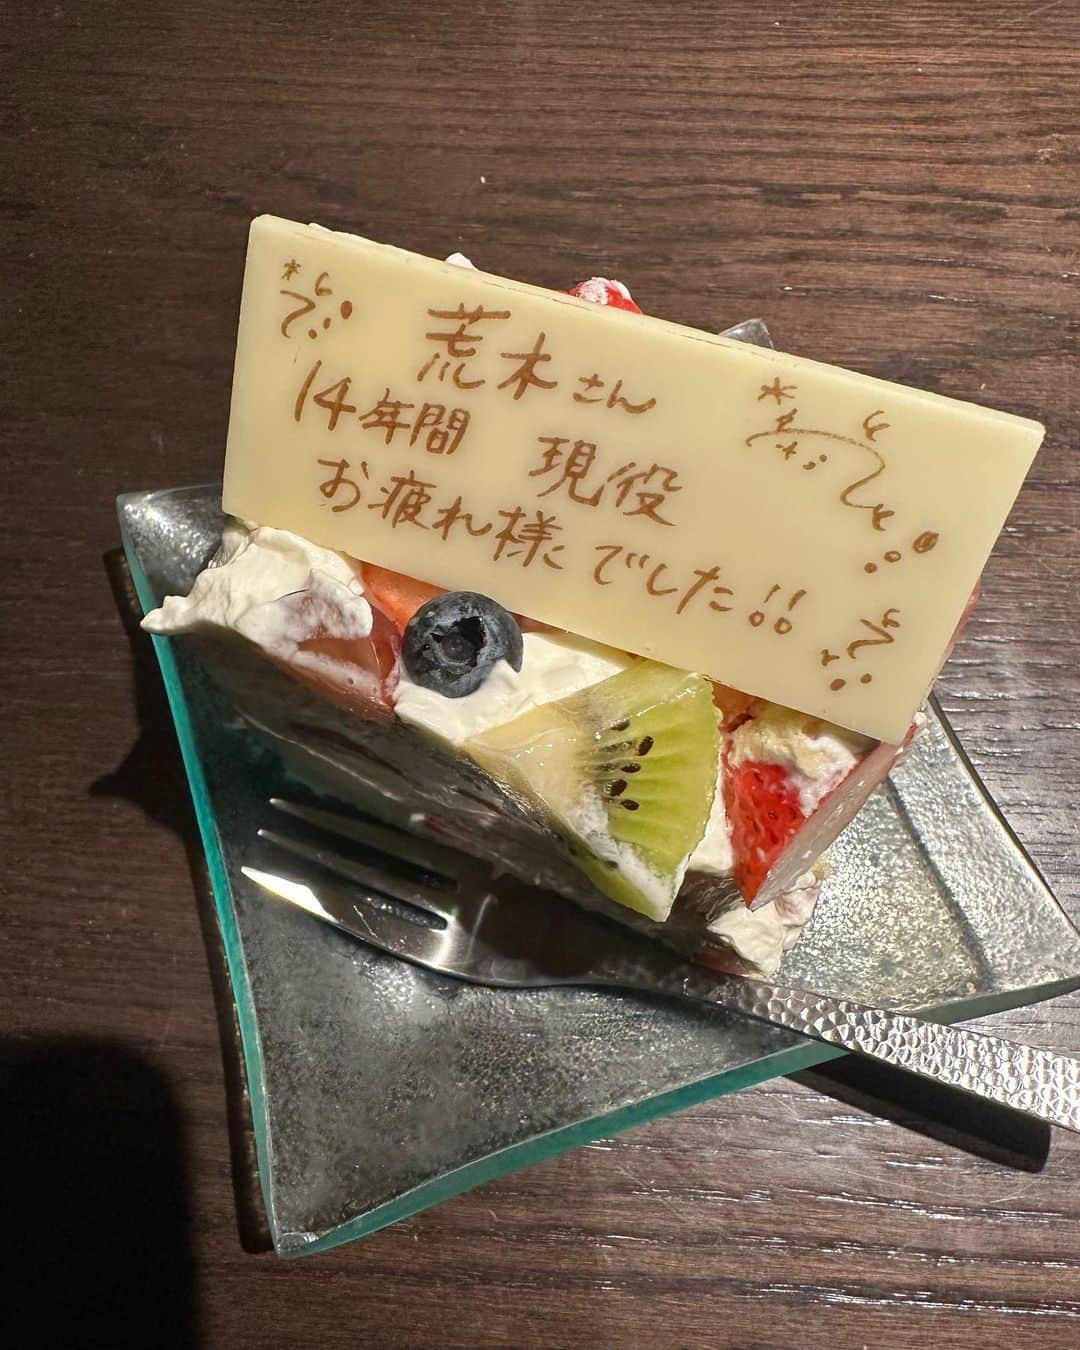 荒木さん
14年間 現役
お疲れ様でした!!